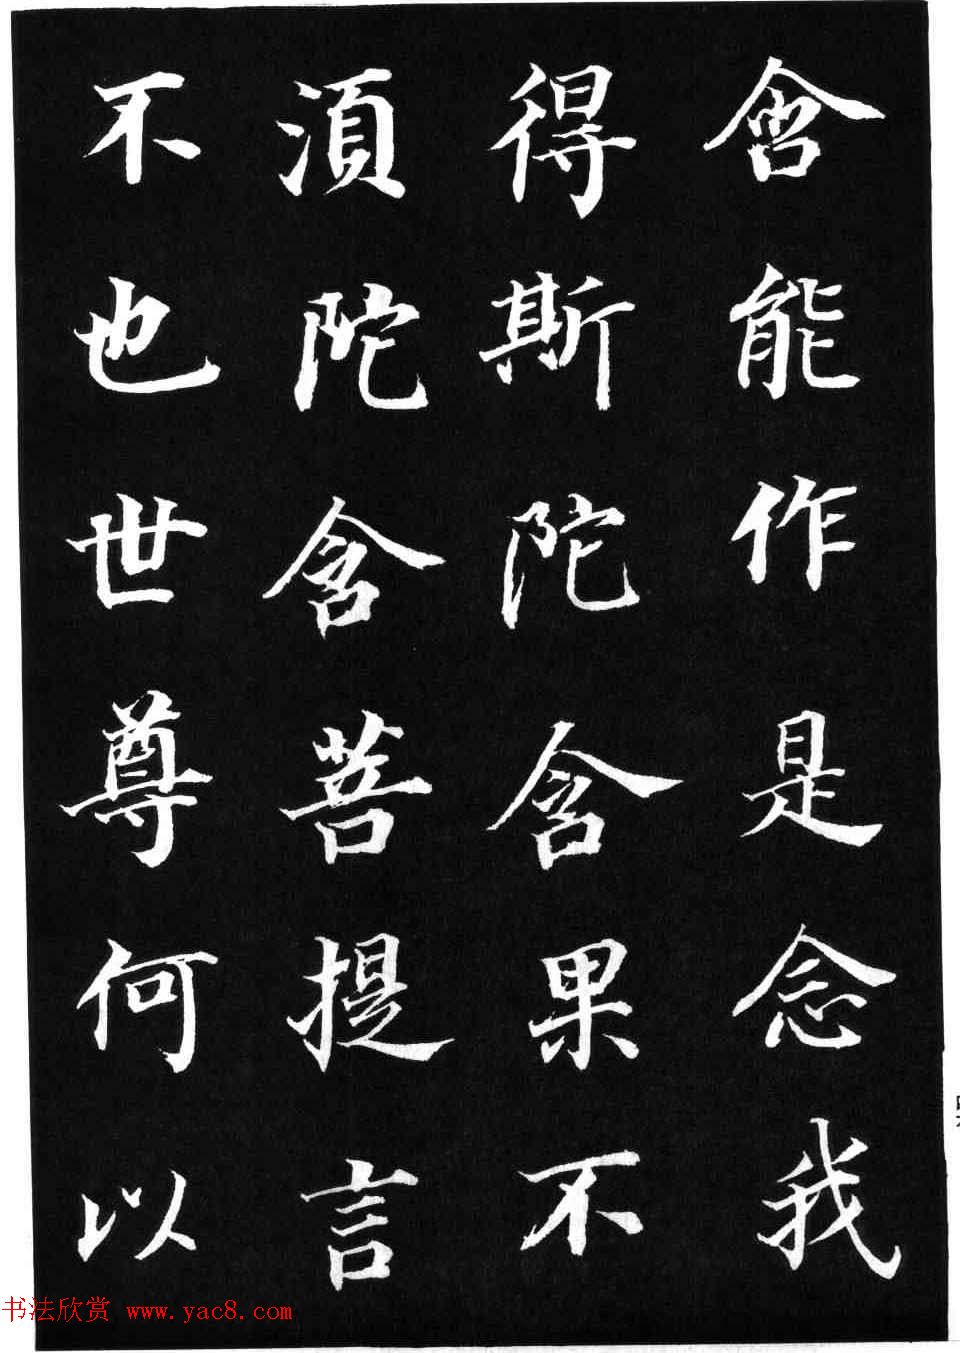 含能作是念我
得斯陀含果不
湏陀含菩提言
不也世尊何以
书法欣赏 www.yac8.com